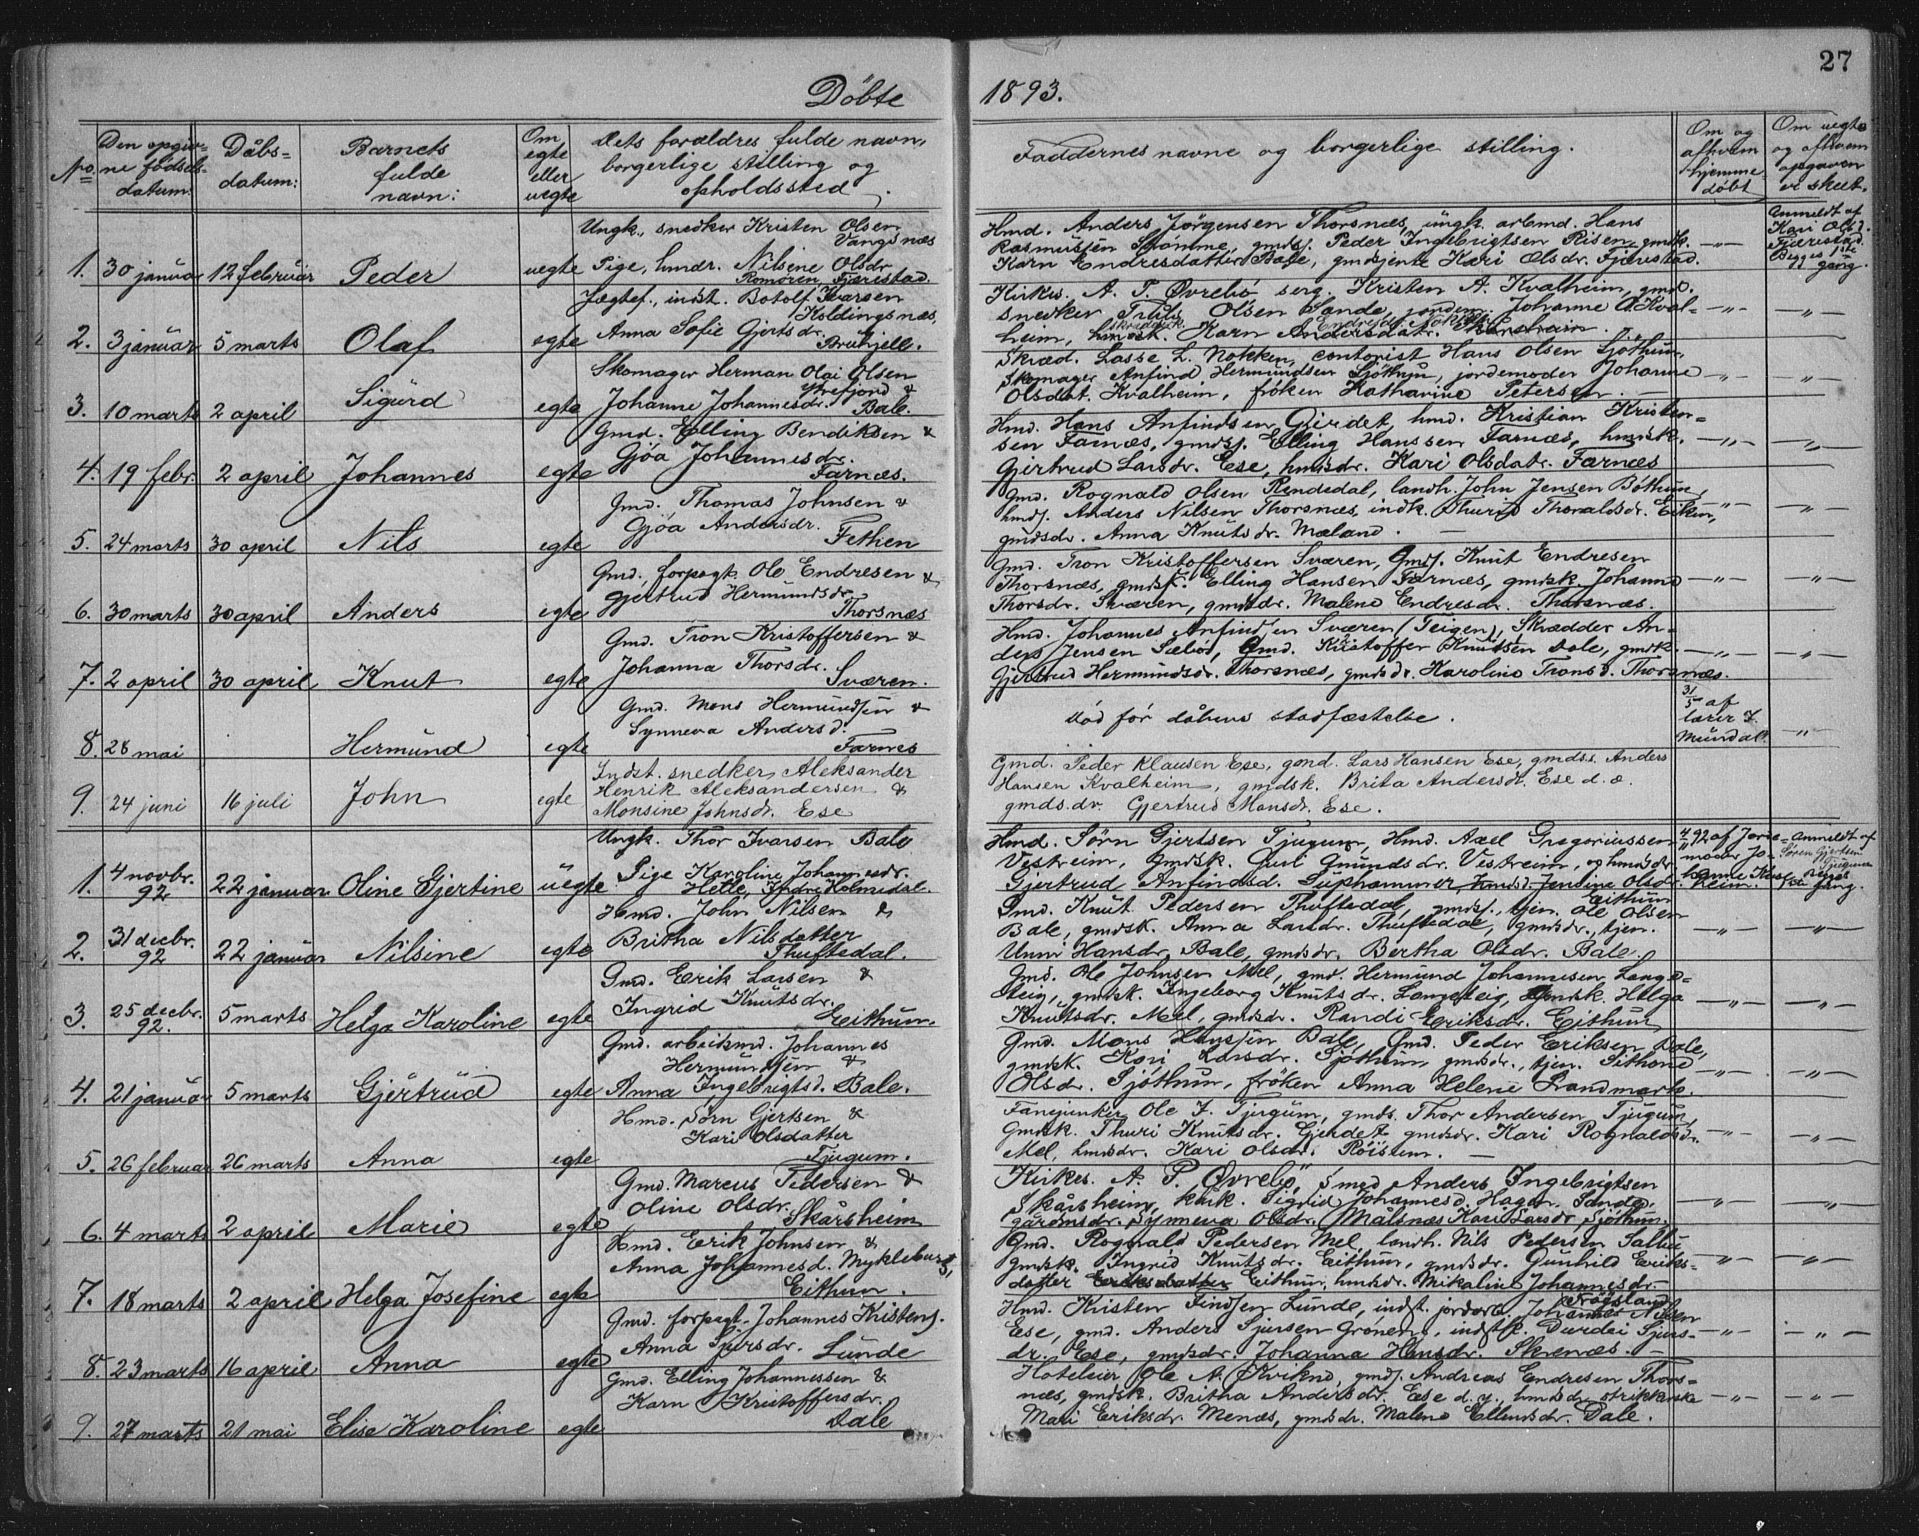 27
Döbte 1893.
No. Den opgiv-
ne födsels-
datum:
Dåbs-
datum:
Barnets
fulde
navn:
Om
egte
eller
uegte
Dets forældres fulde navn,
borgerlige stilling og
opholdssted.
Faddernes navne og borgerlige stilling.
Om og
af hvem
hjemme
döbt
Om uegte
og af hvem
opgaven
er skeet.
1. 30 januar 12 februar Peder uegte
Ungk., snedker Kristen Olsen
Vangsnæs
Pige, hmdr. Nilsine Olsdr.
Romören, Fjærestad.
Hmd. Anders Jörgensen Thorsnæs, ungk. arbmd. Hans
Rasmussen Stömme, gmdsj. Peder Ingebrigtsen Risen, gmdk.
Karn Endresdatter Bale, gmdsjente Kari Olsdr. Fjærestad.
Anmeldt af
Kari Olsd.
Fjærestad.
Begges 1ste
gang.
2. 3 januar 5 marts Olaf egte
Jægtef., indst. Botolf Ivarsen
Holdingsnæs,
Anna Sofie Gjertsdr.
Bruhjell.
Kirkes. A. P. Övrebö, serg. Kristen A. Kvalheim, gmd.
snedker Truls Olsen Sande, jordem. Johanne O. Kval-
heim, hmdsk. Karn Andersdatr.
3. 10 marts 2 april Sigurd egte
Skomager Herman Olai Olsen
Ytrefjord &
Johanne Johannesdr. Bale.
Skræd. Lasse L. Nokken, contorist Hans Olsen Sjöthun,
Skomager Anfind Hermundsen Sjöthun, jordemoder Johanne
Olsdat. Kvalheim, fröken Katharine Petersen.
4. 19 febr. 2 april Johannes egte
Gmd. Elling Bendiksen &
Gjöa Johannesdr.
Farnæs.
Hmd. Hans Anfindsen Gjerdet, hmd. Kristian Kristen-
sen Farnæs, gmdsj. Elling Hanssen Farnæs, hmdsk.
Gjertrud Larsdr. Ese, hmdsdr. Kari Olsdatr. Farnæs
5. 24 marts 30 april Nils egte
Gmd. Thomas Johnsen &
Gjöa Andersdr.
Fethien
Gmd. Rognald Olsen Rendedal, landh. John Jensen Böthun,
hmdsj. Anders Nilsen Thorsnæs, indk. Thurid Thoraldsdr. Eiken,
gmdsdr. Anna Knutsdr. Mæland.
6. 30 marts 30 april Anders egte
Gmd., forpagt. Ole Endresen &
Gjertrud Hermundsdr.
Thorsnæs
Gmd. Tron Kristoffersen Sværen, Gmdsj. Knut Endresen
Thorsnæs, gmdsk. Elling Hansen Farnæs, gmdsk. Johanna
Thorsdr. Sværen, gmdsdr. Malene Endresdr. Thorsnæs.
7. 2 april 30 april Knut egte
Gmd. Tron Kristoffersen &
Johanna Thorsdr.
Sværen.
Hmd. Johannes Anfindsen Sværen (Teigen), Skrædder An-
ders Jensen Sæbö, Gmd. Kristoffer Knutsen Dale, gmdk.
Gjertrud Hermundsdr. Thorsnæs, gmdsdr. Karoline Tronsd. Thorsnæs.
8. 28 mai Hermund egte
Gmd. Mons Hermundsen &
Synneva Andersd.
Farnes
Död för dåbens stadfæstelse.
31/5 af
lærer J.
Mundal.
9. 24 juni 16 juli John egte
Indst. snedker, Aleksander
Henrik Aleksandersen &
Monsine Johnsdr. Ese
Gmd. Peder Klausen Ese, gmd. Lars Hansen Ese, gmds.s. Anders
Hansen Kvalheim, gmdsk. Brita Andersdt. Ese d. æ.
gmds.dr. Gjertrud Monsdr. Ese.
1. 4 novbr.
92 22 januar Oline Gjertine uegte
Ungk. Thor Ivarsen Bale
Pige Karoline Johannesdr.
Hetle, Indre Holmedal.
Hmd. Sörn Gjertsen Tjugum, Hmd. Axel Gregoriussen
Vestreim, Gmdsk. Guri Gmundsdr. Vestreim, og hmdsdr.
Gjertrud Anfindsd. Suphammer hmdsd. Jensine Olsdr.
Eithun
4/11 92 af Jorde-
moder Jo-
hanne Kval-
heim.
Anmeldt af
Sören Gjertsen
Tjugum
Begges
1ste gang.
2. 31 decbr.
92 22 januar Nilsine egte
Hmd. John Nilsen &
Britha Nilsdatter
Thuftedal.
Gmd. Knut Pedersen Thuftedal, gmdsj., tjen. Ole Olsen
Bale, gmdsk. Anna Larsdr. Thuftedal, gmdsdr., tjen.
Unni Hansdr. Bale, gmdsdr. Bertha Olsdr. Bale.
3. 25 decbr.
92. 5 marts Helga Karoline egte
Gmd. Erik Larsen &
Ingrid Knutsdr.
Eithun.
Gmd. Ole Johnsen Mel, gmd. Hermund Johannesen Lange-
steig, gmdsk. Ingeborg Knutsdr. Langesteig, Gmdsk. Helga
Knutsdr. Mel, gmdsdr. Randi Eriksdr. Eithun
4. 21 januar 5 marts Gjertrud egte
Gmd. arbeidsmd. Johannes
Hermundsen &
Anna Ingebrigtsd. Bale.
Gmd. Mons Hanssen Bale, Gmd. Peder Eriksen Bale,
gmdsk. Kari Larsdr. Sjöthun, gmdsdr., tjen. Sithone
Olsdr. Sjöthun, fröken Anna Helene Brandmark.
5. 26 februar 26 marts Anna egte
Hmd. Sörn Gjertsen &
Kari Olsdatter
Tjugum.
Fanejunker Ole J. Tjugum, gmds. Thor Andersen Tjugum,
Gmdsk. Thuri Knutsdr. Gjerdet gmdsdr. Kari Rognaldsdr.
Mel, hmdsdr. Kari Olsdr. Röisten.
6. 4 marts 2 april Marie egte
Gmd. Marcus Pedersen &
Oline Olsdr.
Skårsheim
Kirkes. A. P. Övrebö, Smed Anders Ingebrigtsen
Skårsheim, Kirk. Sigrid Johannesd. Hagen Sande,
gårdmsdr. Synneva Olsdr. Målsnæs Kari Larsdr. Sjöthun.
7. 18 marts 2 april Helga Josefine egte
Hmd. Erik Johnsen &
Anna Johannesd. Myklebust,
Eithun.
Gmd. Rognald Pedersen Mel, landh. Nils Pedersen Salbu
Gmdsk. Ingrid Knutsdr. Eithun, gmdsdr. Gunhild Eriks-
datter Eithun, hmdsdr. Mikaline Johannesdr.
8. 23 marts 16 april Anna egte
Gmd. forpagt. Johannes Kristensj.
Anna Sjursdr. Lunde
Hmd. Kristen Findsen Lunde, indst. jordarb. Johannes Nilsen
Ese, gmd. Anders Sjursen Grönen, indstp. Durdei Sjurs-
dr. Ese, gmdsdr. Johanna Hansdr. Skrenæs.
9. 27 marts 21 mai Elise Karoline egte
Gmd. Elling Johannessen &
Karn Kristoffersdr.
Dale
Hoteleier Ole A. Kvikne, gmdsj. Andreas Endresen Thors-
næs, gmdsk. Britha Andersdt. Ese d. y., hmdsdr. strikkerske
Mari Eriksdr. Menæs, gmdsdr. Malene Ellendsdr. Dale.